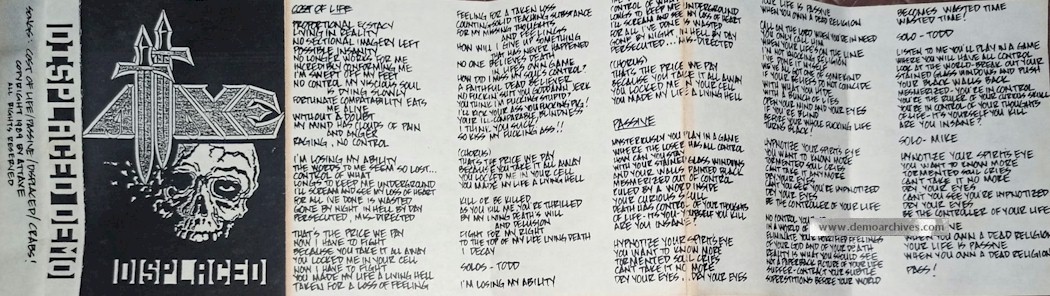 SONGS: COST OF LIFE/PASSIVE/DISPLACED/CRABS!
COPYRIGHT 1989 BY ATTAVE
ALL RIGHTS RESERVED
DISPLACED DEMO
DISPLACED
COST OF LIFE
PROPORTIONAL ECSTACY
LIVING IN REALITY
NO SECTIONAL IMAGERY LEFT
POSSIBLE INSANITY
NO LONGER WORKS FOR ME
INCREDIBLY CONFORMING ME
I'M SWEPT OFF MY FEET
NO CONTROL MY VISCOUS SOUL
IS DYING SLOWLY
FORTUNATE COMPATABILITY EATS
ME ALIVE
WITHOUT A DOUBT
MY MIND HAS CLOUDS OF PAIN
AND ANGER
RAGING, NO CONTROL
I'M LOSING MY ABILITY
THE WORDS TO ME SEEM SO LOST...
CONTROL OF WHAT
LONGS TO KEEP ME UNDERGROUND
I'LL SCREAM AND SEE MY LOSS OF HEART
FOR ALL I'VE DONE IS WASTED
GONE BY NIGHT IN HELL BY DAY
PERSECUTED, MIS-DIRECTED
THAT'S THE PRICE WE PAY
NOW I HAVE TO FIGHT
BECAUSE YOU TAKE IT ALL AWAY
YOU LOCKED ME IN YOUR CELL
NOW I HAVE TO FIGHT
YOU MADE MY LIFE A LIVING HELL
TAKEN FOR A LOSS OF FEELING
FEELING FOR A TAKEN LOSS
COUNTING SOLID TEACHING SUBSTANCE
FOR MY MISSING THOUGHTS
AND FEELINGS
HOW WILL I GIVE UP SOMETHING
THIS HAS NEVER HAPPENED
NO ONE BELIEVES DEATH
IN LIFE'S OWN GAME
HOW DID I MISS MY SOULS CONTROL?
A FAITHFUL DEAD BELIEVER
NO FUCKIN SHIT YOU GODDAMN JERK
YOU THINK I'M FUCKING STUPID?
I'LL KICK YOUR ASS YOU FUCKING PIG!
YOUR ILL-COMPARABLE, BLINDNESS
I THINK YOU SUCK
SO KISS MY FUCKING ASS!!
(CHORUS)
THAT'S THE PRICE WE PAY
BECAUSE YOU TAKE IT ALL AWAY
YOU LOCKED ME IN YOUR CELL
YOU MADE MY LIFE A LIVING HELL
KILL OR BE KILLED
AS YOU KILL ME YOU'RE THRILLED
BY MY LIVING DEATH'S WILL
AND DELUSION
FIGHT FOR MY RIGHT
TO THE TOP OF MY LIFE LIVING DEATH
I DECAY
SOLOS - TODD
I'M LOSING MY ABILITY
CONTROL OF WHAT
LONGS TO KEEP ME UNDERGROUND
I'LL SCREAM AND SEE MY LOSS OF HEART
FOR ALL I'VE DONE IS WASTED
GONE BY NIGHT, IN HELL BY DAY
PERSECUTED... MIS-DIRECTED
(CHORUS)
THAT'S THE PRICE WE PAY
BECAUSE YOU TAKE IT ALL AWAY
YOU LOCKED ME IN YOUR CELL
YOU MADE MY LIFE A LIVING HELL
PASSIVE
MYSTERIOUSLY YOU PLAY IN A GAME
WHERE THE LOSER HAS ALL CONTROL
HOW CAN YOU STAY
WITH YOUR STAINED GLASS WINDOWS
AND YOUR WALLS PAINTED BLACK
MESMERIZED OUT OF CONTROL
RULED BY A WORD INSIDE
YOUR CURIOUS SKULL
DEATH HAS CONTROL OF YOUR THOUGHTS
OF LIFE - IT'S YOU - YOURSELF YOU KILL
ARE YOU INSANE?
HYPNOTIZE YOUR SPIRITS EYE
YOU WANT TO KNOW MORE
TORMENTED SOUL CRIES
CAN'T TAKE IT NO MORE
DRY YOUR EYES... DRY YOUR EYES
YOUR LIFE IS PASSIVE
WHEN YOU OWN A DEAD RELIGION
CALL ON THE LORD WHEN YOU'RE IN NEED
YOU ONLY CALL HIM
WHEN YOUR LIFE'S ON THE LINE
WITH A BUNCH OF LIES
OPEN YOUR MIND AND YOUR EYES
BEFORE YOUR WHOLE FUCKING LIFE
TURNS BLACK!
HYPNOTIZE YOUR SPIRITS EYE
YOU WANT TO KNOW MORE
TORMENTED SOUL CRIES
CAN'T TAKE IT ANYMORE
DRY YOUR EYES
CAN'T YOU SEE YOU'RE HYPNOTIZED
DRY YOUR EYES
BE THE CONTROLLER OF YOUR LIFE
OF YOUR GOD AND OF YOUR DEATH
REALITY IS WHAT YOU SHOULD SEE
NOT A PAPERBACK PICTURE OF YOUR LIFE
SUPERSTITIONS BEFORE YOUR WORLD
BECOMES WASTED TIME
WASTED TIME!
SOLO - TODD
LISTEN TO ME YOU'LL PLAY IN A GAME
WHERE YOU WILL HAVE ALL CONTROL
LOOK AT THE WORLD BREAK OUT YOUR
STAINED GLASS WINDOWS AND PUSH
YOUR BLACK WALLS BACK
MESMERIZED - YOU'RE IN CONTROL
YOU'RE THE RULER OF YOUR CURIOUS SKULL
YOU'RE IN CONTROL OF YOUR THOUGHTS
OF LIFE - IT'S YOURSELF YOU KILL
ARE YOU INSANE?
SOLO - MIKE
HYPNOTIZE YOUR SPIRITS EYE
YOU WANT TO KNOW MORE
TORMENTED SOUL CRIES
CAN'T TAKE IT NO MORE
DRY YOUR EYES
CAN'T YOU SEE YOU'RE HYPNOTIZED
DRY YOUR EYES
BE THE CONTROLLER OF YOUR LIFE
www.demoarchives.com
WHEN YOU OWN A DEAD RELIGION
YOUR LIFE IS PASSIVE
WHEN YOU OWN A DEAD RELIGION
PASS!